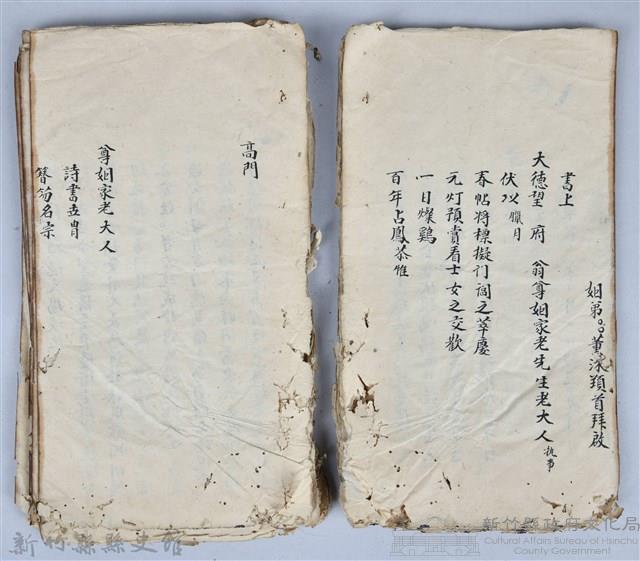 姻弟○○薰沐頓首拜啟
書上
大德望 府 翁尊姻家老先生老大人 執事
伏以 臘月
春帖將標擬门闾之萃慶
元灯預賞看士女之交歡
一日燦鷄
百年占鳳恭惟
高门
尊姻家老大人
詩書世胄
簪笏名宗
新竹縣縣史館
新竹縣政府文化局
Cultural Affairs Bureau of Hsinchu
County Government